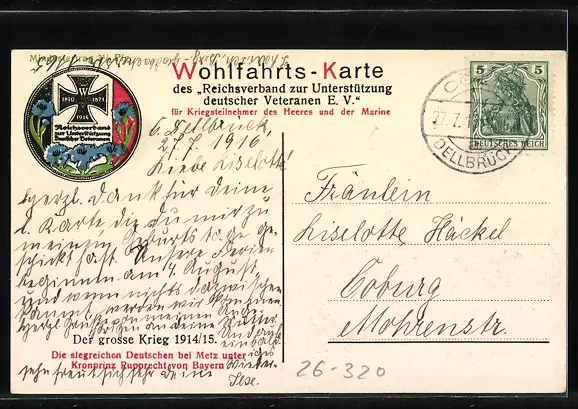 Wohlfahrts-Karte
des „Reichsverband zur Unterstützung
deutscher Veteranen E. V.“
für Kriegsteilnehmer des Heeres und der Marine
W
1870 1871
1914
Reichsverband
zur Unterstützung
Deutscher Veteranen
5 5
DEUTSCHES REICH
DELLBRÜCK
Dellbrück,
27.7.1916
Liebe Liselotte!
Herzl. Dank für Deine
l. Karte, die Du mir zu
meinem Geburtstage ge-
schickt hast. Unsere Ferien
beginnen am 4. August,
und wenn nichts dazwischen
kommt, werden wir
Herzl. an deine Mutter
Der grosse Krieg 1914/15.
Die siegreichen Deutschen bei Metz unter
Kronprinz Rupprecht von Bayern
sehn freut sich sehr deine
Ilse.
Fräulein
Liselotte Häckel
Coburg
Mohrenstr.
26-320